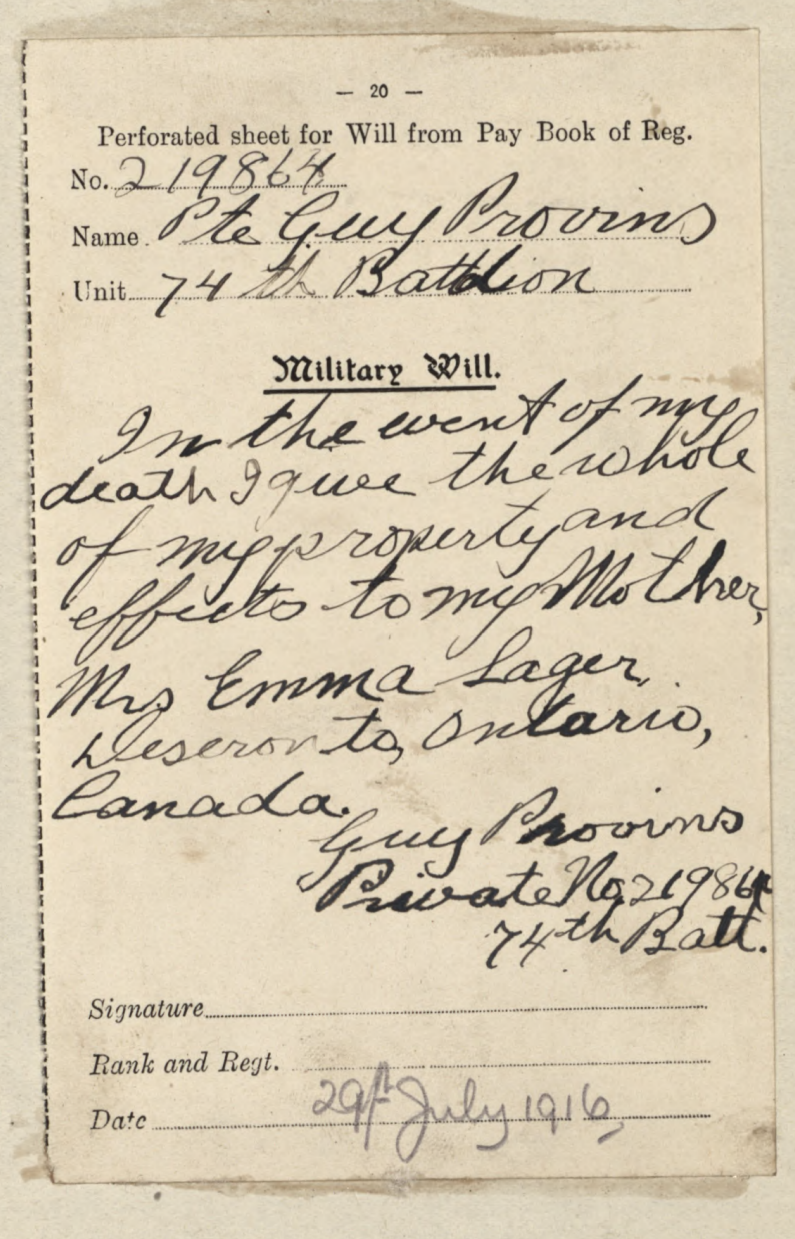 — 20 —
Perforated sheet for Will from Pay Book of Reg.
No. 219864
Name. Pte Guy Provins
Unit 74th Battalion
Military Will.
In the event of my
death I give the whole
of my property and
effects to my Mother,
Mrs Emma Sager,
Deseronto, Ontario,
Canada.
Guy Provins
Private No. 219864
74th Batt.
Signature
Rank and Regt.
Date 29th July 1916